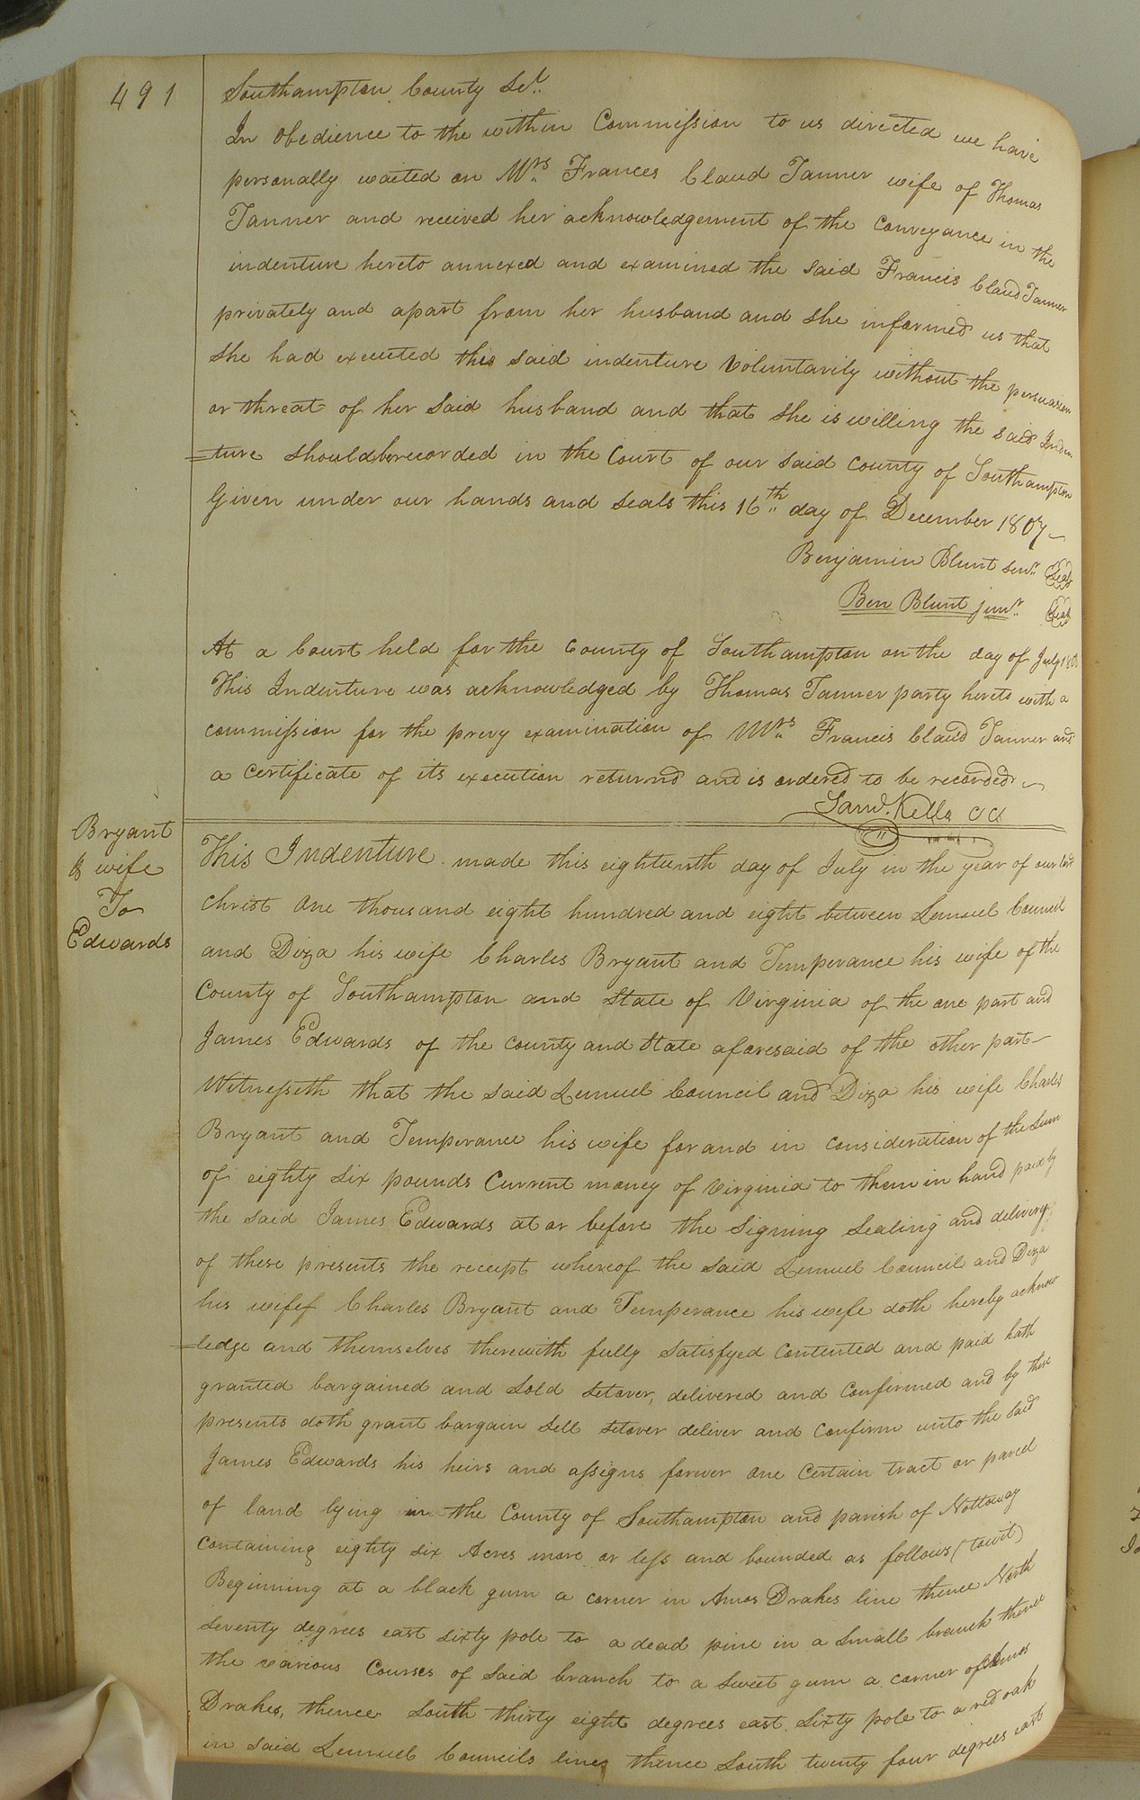 491
Southampton County Sct.
In Obedience to the within Commission to us directed we have
personally waited on Mrs. Frances Claud Tanner wife of Thomas
Tanner and received her acknowledgement of the Conveyance in the
indenture hereto annexed and examined the said Francis Claud Tanner
privately and apart from her husband and she informed us that
she had executed the said indenture Voluntarily without the persuasion
or threat of her said husband and that she is willing the said Inden
=ture should be recorded in the Court of our said County of Southampton
Given under our hands and seals this 16th day of December 1807
Benjamin Blunt senr. Seal
Ben Blunt junr. Seal
At a Court held for the County of Southampton on the day of July
This Indenture was acknowledged by Thomas Tanner party hereto with a
commission for the privy examination of Mrs. Francis Claud Tanner and
a certificate of its execution returnd and is ordered to be recorded
Saml. Kello CC
Bryant
& wife
To
Edwards
This Indenture made this eighteenth day of July in the year of our Lord
Christ One thousand eight hundred and eight between Lemuel Council
and Diza his wife Charles Bryant and Temperance his wife of the
County of Southampton and State of Virginia of the one part and
James Edwards of the County and State aforesaid of the other part
Witnesseth that the said Lemuel Council and Diza his wife Charles
Bryant and Temperance his wife for and in consideration of the Sum
of eighty six pounds Current money of Virginia to them in hand paid by
the said James Edwards at or before the signing sealing and delivery
of these presents the receipt whereof the said Lemuel Council and Diza
his wifef Charles Bryant and Temperance his wife doth hereby acknow
=ledge and themselves therewith fully satisfyed Contented and paid hath
granted bargained and sold setover, delivered and Confirmed and by these
presents doth grant bargain Sell setover deliver and Confirm unto the said
James Edwards his heirs and assigns forever One Certain tract or parcel
of land lying in the County of Southampton and parish of Nottoway
Containing eighty six Acres more or less and bounded as follows (towit)
Beginning at a black gum a corner in Amos Drakes line thence North
seventy degrees east sixty pole to a dead pine in a small branch thence
the various Courses of said branch to a sweet gum a corner of Amos
Drakes, thence South thirty eight degrees east sixty pole to a red oak
in said Lemuel Councils lines thence South twenty four degrees east